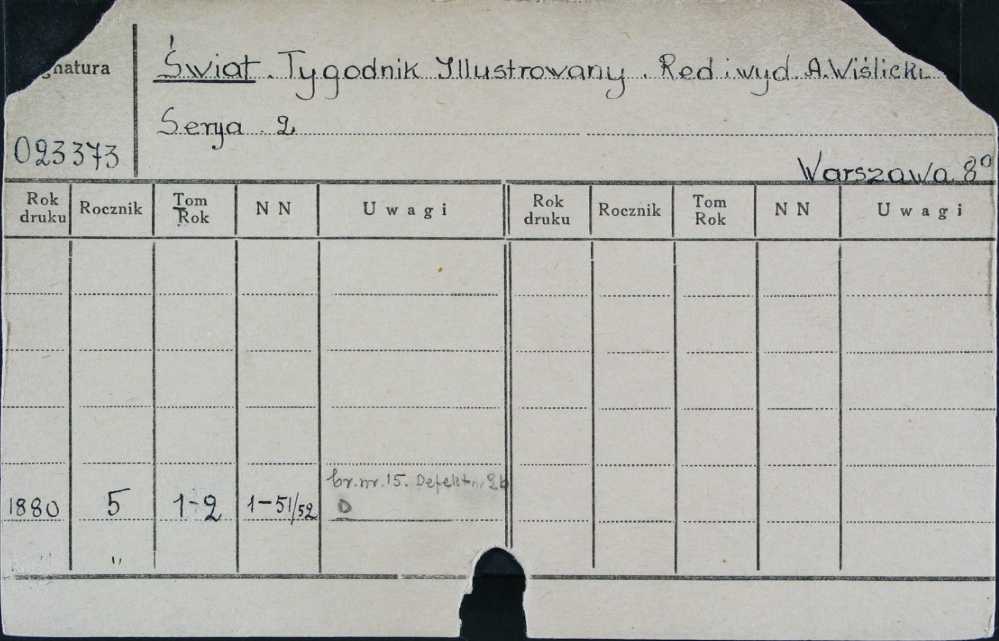 Świat. Tygodnik Illustrowany. Red i wyd. A. Wiślicki
natura
Serya 2
023373
Warszawa 8°
Rok druku Rocznik Tom Rok N N Uwagi Rok druku Rocznik Tom Rok N N Uwagi
br. nr. 15. Defekt
1880 5 1-2 1-51/52 D
"